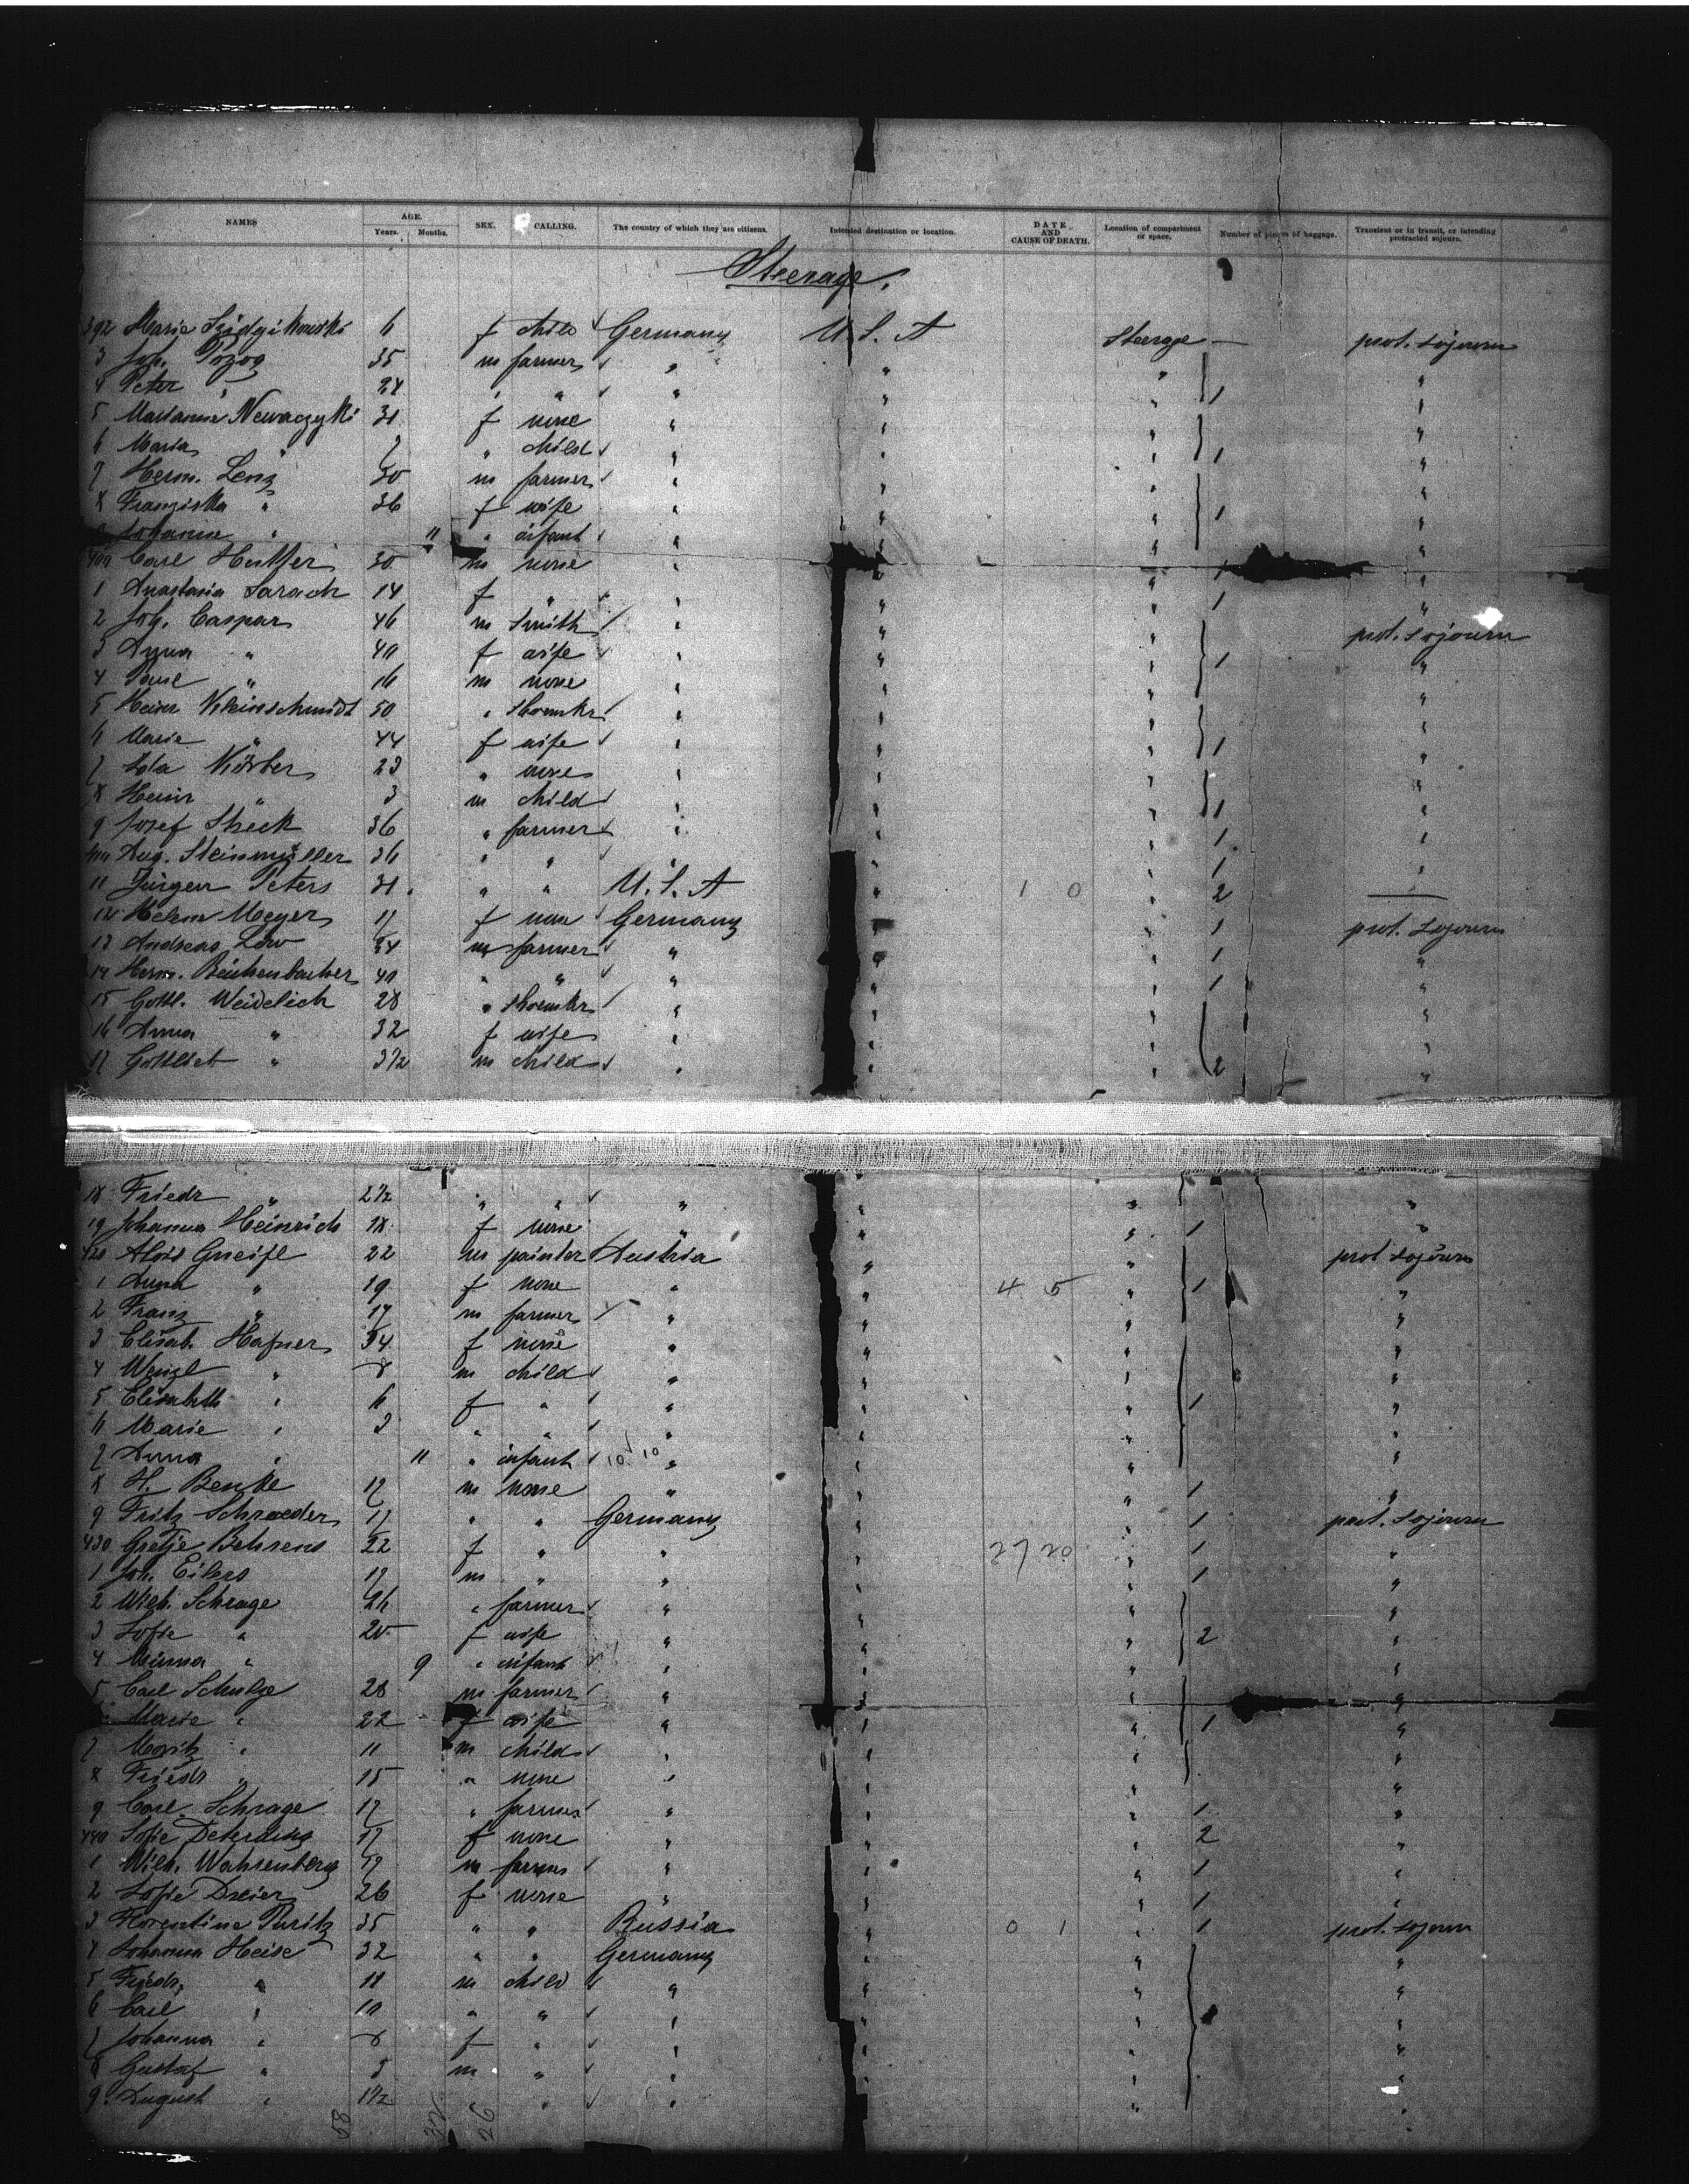 NAMES AGE. Years. Months. SEX. CALLING. The country of which they are citizens. Intended destination or location. DATE AND CAUSE OF DEATH. Location of compartment or space. Number of pieces of baggage. Transient or in transit, or intending protracted sojourn.
Steerage.
392 Marie 6 f child Germany U. S. A Steerage — prot. sojourn
3 Joh. 35 m farmer " " "
4 Peter " 24 " " " " " 1 "
5 31 f none " " " "
6 Maria " 7 " child " " " 1 "
7 Herm. Lenz 30 m farmer " " " "
8 Franziska " 36 f wife " " " 1 "
9 Johanna " 11 " infant " " " "
400 Carl 30 m none " " " 1 "
1 Anastasia Sarach 14 f " " " " 1 "
2 Joh. Caspar 46 m Smith " " " prot. sojourn
3 Anna " 40 f wife " " " 1 "
4 Paul " 16 m none " " " "
5 Heinr Kleinschmidt 50 " shoemkr " " " "
6 Marie " 44 f wife " " " 1 "
7 Ida Körber 23 " none " " " "
8 Heinr " 3 m child " " " 1 "
9 Josef Sheck 36 " farmer " " " 1 "
410 Aug. Steinmüller 36 " " " " " 1 "
11 Jürgen Peters 31 " " U. S. A " 1 0 " 2 —
12 Meyer 17 f none Germany " " 1 prot. sojourn
13 Andreas Löw 34 m farmer " " " 1 "
14 Herm. Reichenbacher 40 " " " " " 1 "
15 Gottl. Weidelich 28 " shoemkr " " " "
16 Anna " 32 f wife " " " "
17 Gottlieb " 3 1/2 m child " " " 2 "
18 Friedr " 2 1/2 " " " " " "
19 Johanna Heinrich 18 f none " " " 1 "
420 Alois Gneipl 22 m painter Austria " " prot sojourn
1 Anna " 19 f none " " 4 5 " 1 "
2 Franz " 17 m farmer " " " "
3 Elisab. Hafner 34 f none " " " "
4 Wenzl " 8 m child " " " "
5 Elisabeth " 6 f " " " " 1 "
6 Marie " 3 " " " " " "
7 Anna " 11 " infant 10 10 " " " "
8 H. Benke 17 m none " " " 1 "
9 Fritz Schraeder 17 " " Germany " " 1 prot. sojourn
430 Gretje Behrens 22 f " " " 27 20 " 1 "
1 Joh. Eilers 17 m " " " " 1 "
2 Wilh. Schrage 26 " farmer " " " "
3 Sofie " 20 f wife " " " 2 "
4 Minna " 9 " infant " " " "
5 Carl Schulze 28 m farmer " " " "
Marie " 22 f wife " " " 1 "
7 Moritz " 11 m child " " " "
8 Friedr " 15 " none " " " "
9 Carl Schrage 17 " farmer " " " 1 "
440 Sofie Detering 17 f none " " " 2 "
1 Wilh. Wahrenberg 19 m farmer " " " 1 "
2 Sofie Dreier 26 f none " " " 1 "
3 Florentine Puritz 35 " " Russia " 0 1 " 1 prot. sojourn
4 Johanna Heise 32 " " Germany " " "
5 Friedr. " 11 m child " " " "
6 Carl " 10 " " " " " "
7 Johanna " 8 f " " " " "
8 Gustaf " 5 m " " " " "
9 August " 1 1/2 " " " " "
58 32 26